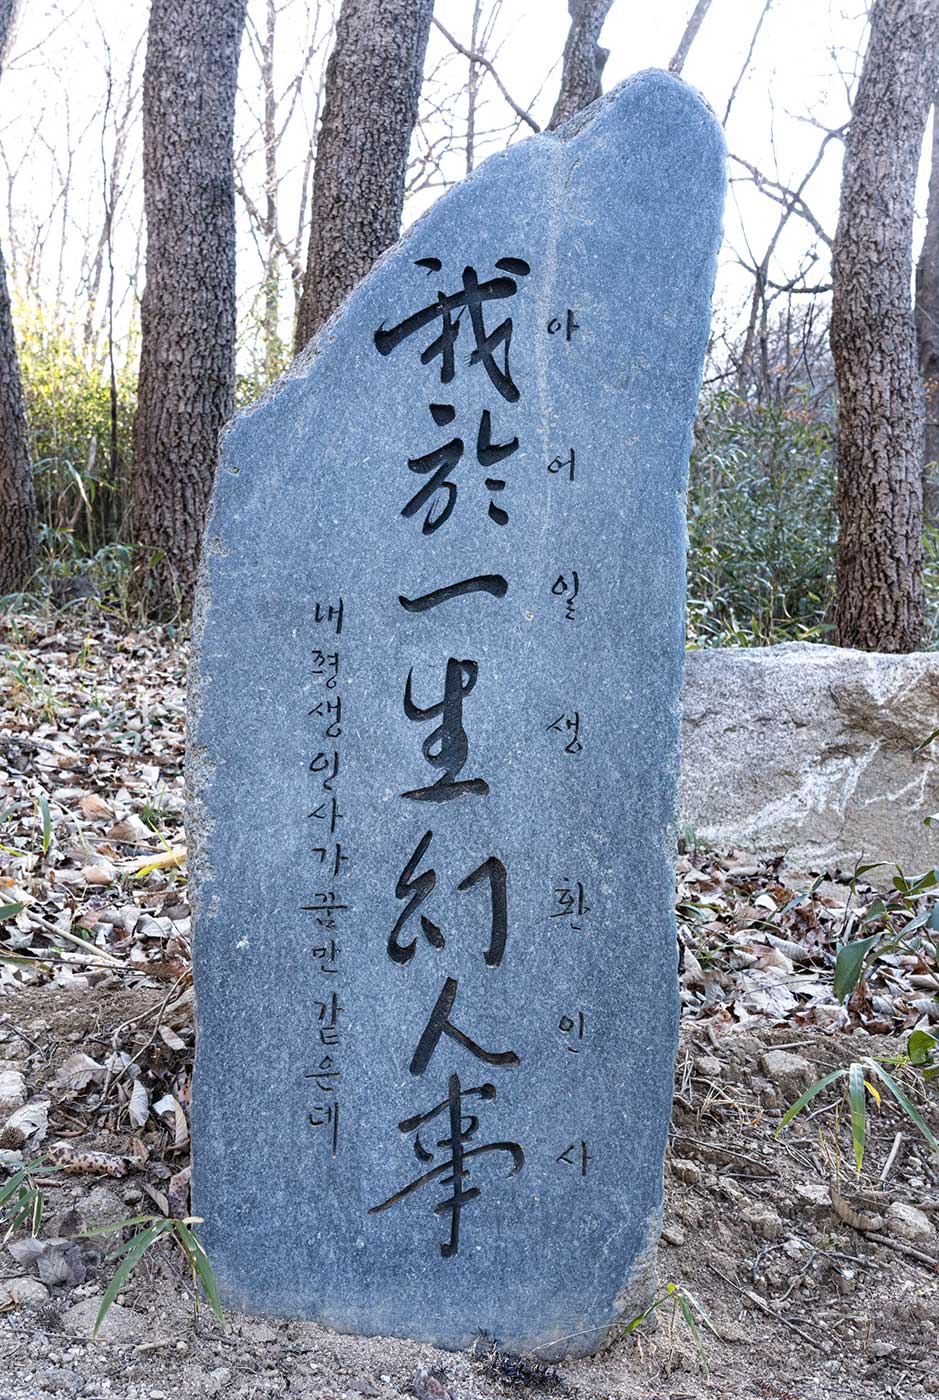 아어일생환인사
我於一生幻人事
내평생인사가꿈만같은데